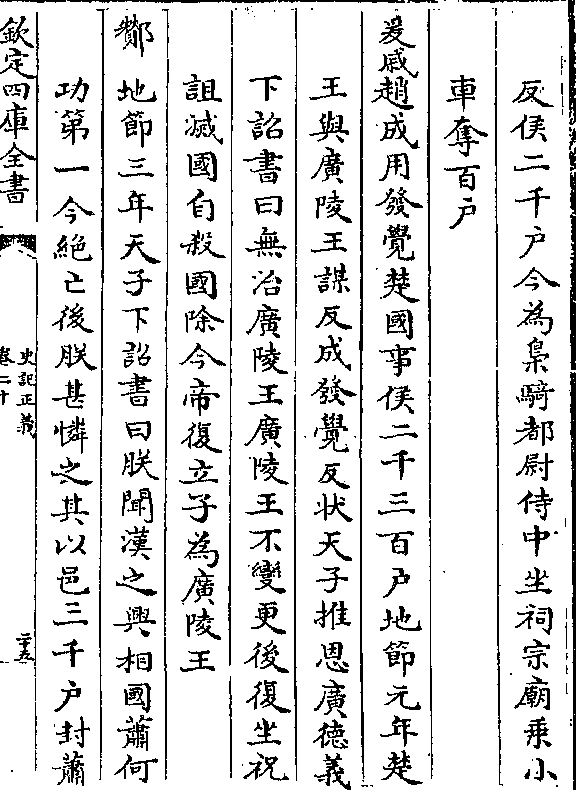 反侯二千户今為梟騎都尉侍中坐祠宗廟乘小
車奪百户
爰戚趙成用發覺楚國事侯二千三百户地節元年楚
王與廣陵王謀反成發覺反状天子推恩廣徳義
下詔書曰無治廣陵王廣陵王不變更後復坐祝
詛滅國自殺國除今帝復立子為廣陵王
酇地節三年天子下詔書曰朕聞漢之興相國蕭何
功第一今絶亡後朕甚憐之其以邑三千户封蕭
欽定四庫全書
史記正義
卷二十
二十五